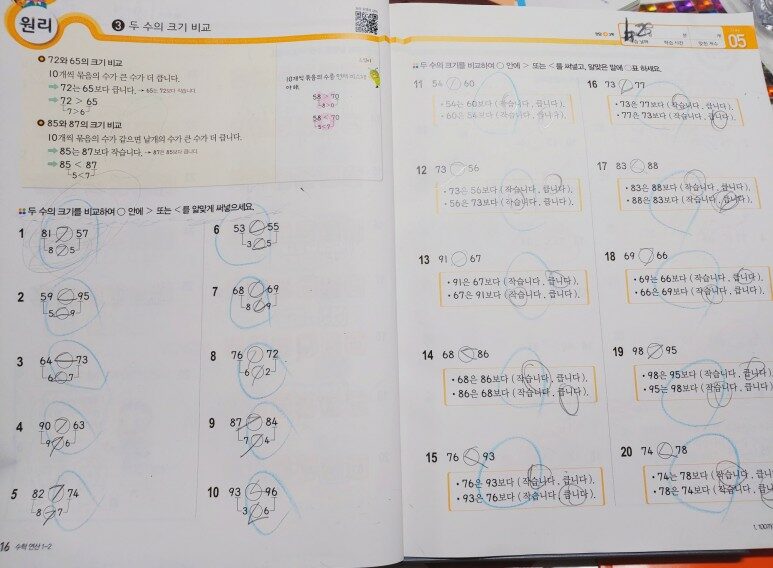 원리
3 두 수의 크기 비교
72와 65의 크기 비교
10개씩 묶음의 수가 큰 수가 더 큽니다.
➡ 72는 65보다 큽니다. → 65는 72보다 작습니다.
➡ 72 > 65
7>6
85와 87의 크기 비교
10개씩 묶음의 수가 같으면 낱개의 수가 큰 수가 더 큽니다.
➡ 85는 87보다 작습니다. → 87은 85보다 큽니다.
➡ 85 < 87
5<7
10개씩 묶음의 수를 먼저
야 해.
58 > 70
8>0
58 < 70
5<7
두 수의 크기를 비교하여 ○ 안에 > 또는 <를 알맞게 써넣으세요.
1 81 > 57
8 > 5
2 59 < 95
5 < 9
3 64 < 73
6 < 7
4 90 > 63
9 > 6
5 82 > 74
8 > 7
6 53 < 55
3 < 5
7 68 < 69
8 < 9
8 76 > 72
6 > 2
9 87 > 84
7 > 4
10 93 < 96
3 < 6
16 수학 연산 1-2
05
두 수의 크기를 비교하여 ○ 안에 > 또는 <를 써넣고, 알맞은 말에 ○표 하세요.
11 54 < 60
• 54는 60보다 (작습니다, 큽니다).
• 60은 54보다 (작습니다, 큽니다).
12 73 56
• 73은 56보다 (작습니다, 큽니다).
• 56은 73보다 (작습니다, 큽니다).
13 91 67
• 91은 67보다 (작습니다, 큽니다).
• 67은 91보다 (작습니다, 큽니다).
14 68 < 86
• 68은 86보다 (작습니다, 큽니다).
• 86은 68보다 (작습니다, 큽니다).
15 76 < 93
• 76은 93보다 (작습니다, 큽니다).
• 93은 76보다 (작습니다, 큽니다).
16 73 77
• 73은 77보다 (작습니다, 큽니다).
• 77은 73보다 (작습니다, 큽니다).
17 83 88
• 83은 88보다 (작습니다, 큽니다).
• 88은 83보다 (작습니다, 큽니다).
18 69 > 66
• 69는 66보다 (작습니다, 큽니다).
• 66은 69보다 (작습니다, 큽니다).
19 98 > 95
• 98은 95보다 (작습니다, 큽니다).
• 95는 98보다 (작습니다, 큽니다).
20 74 < 78
• 74는 78보다 (작습니다, 큽니다).
• 78은 74보다 (작습니다, 큽니다).